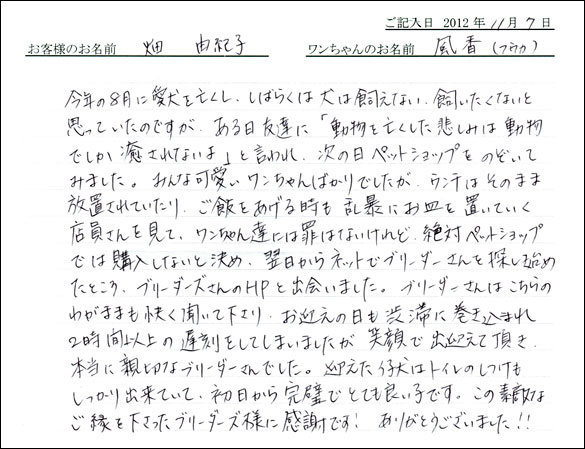 ご記入日 2012年11月7日
お客様のお名前 畑 由紀子 ワンちゃんのお名前 風香(フウカ)
今年の8月に愛犬を亡くし、しばらくは犬は飼えない、飼いたくないと
思っていたのですが、ある日友達に「動物を亡くした悲しみは動物
でしか癒されないよ」と言われ、次の日ペットショップをのぞいて
みました。みんな可愛いワンちゃんばかりでしたが、ウンチはそのまま
放置されていたり、ご飯をあげる時も乱暴にお皿を置いていく
店員さんを見て、ワンちゃん達には罪はないけれど、絶対ペットショップ
では購入しないと決め、翌日からネットでブリーダーさんを探し始め
たところ、ブリーダーズさんのHPと出会いました。ブリーダーさんはこちらの
わがままも快く聞いて下さり、お迎えの日も渋滞に巻き込まれ
2時間以上の遅刻をしてしまいましたが笑顔で出迎えて頂き、
本当に親切なブリーダーさんでした。迎えた仔犬はトイレのしつけも
しっかり出来ていて、初日から完璧でとても良い子です。この素敵な
ご縁を下さったブリーダーズ様に感謝です! ありがとうございました!!